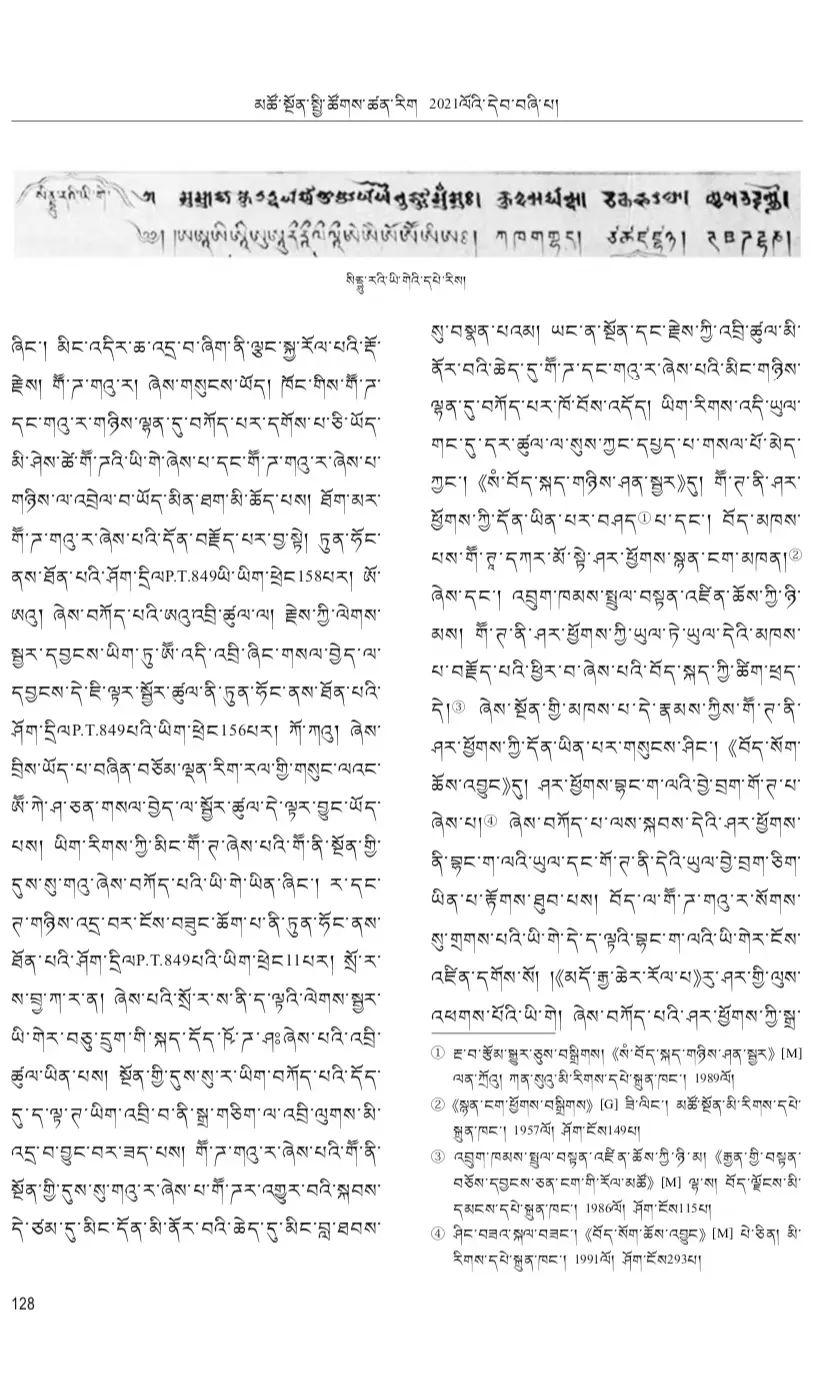 མཚོ་སྔོན་སྤྱི་ཚོགས་ཚན་རིག 2021ལོའི་དེབ་བཞི་པ།
སིནྡྷུ་རའི་ཡི་གེའི་དཔེ་རིས།
ཞིང་། མིང་འདིར་ཆ་འདྲ་བ་ཞིག་ནི་ལྕང་སྐྱ་རོལ་པའི་རྡོ་
རྗེས། གཽ་ཌ་གའུ་ར། ཞེས་གསུངས་ཡོད། ཁོང་གིས་གཽ་ཌ་
དང་གའུ་ར་གཉིས་ལྷན་དུ་བཀོད་པར་དགོས་པ་ཅི་ཡོད་
མི་ཤེས་ཚེ་གཽ་ཌའི་ཡི་གེ་ཞེས་པ་དང་གཽ་ཌ་གའུ་ར་ཞེས་པ་
གཉིས་ལ་འབྲེལ་བ་ཡོད་མིན་ཐག་མི་ཆོད་པས། ཐོག་མར་
གཽ་ཌ་གའུ་ར་ཞེས་པའི་དོན་བརྗོད་པར་བྱ་སྟེ། ཏུན་ཧོང་
ནས་ཐོན་པའི་ཤོག་དྲིལP.T.849ཡི་ཡིག་ཕྲེང158པར། ཨོ་
ཨའུ། ཞེས་བཀོད་པའི་ཨའུ་འབྲི་ཚུལ་ལ། རྗེས་ཀྱི་ལེགས་
སྦྱར་དབྱངས་ཡིག་ཏུ་ཨཽ་འདི་འབྲི་ཞིང་གསལ་བྱེད་ལ་
དབྱངས་དེ་ཇི་ལྟར་སྦྱོར་ཚུལ་ནི་ཏུན་ཧོང་ནས་ཐོན་པའི་
ཤོག་དྲིལP.T.849པའི་ཡིག་ཕྲེང156པར། ཀོ་ཀའུ། ཞེས་
བྲིས་ཡོད་པ་བཞིན་བཅོམ་ལྡན་རིག་རལ་གྱི་གསུང་ལའང་
ཨཽ་ཀེ་ཤ་ཅན་གསལ་བྱེད་ལ་སྦྱོར་ཚུལ་དེ་ལྟར་བྱུང་ཡོད་
པས། ཡིག་རིགས་ཀྱི་མིང་གཽ་ཌ་ཞེས་པའི་གཽ་ནི་སྔོན་གྱི་
དུས་སུ་གའུ་ཞེས་བཀོད་པའི་ཡི་གེ་ཡིན་ཞིང་། ར་དང་
ཌ་གཉིས་འདྲ་བར་ངོས་བཟུང་ཆོག་པ་ནི་ཏུན་ཧོང་ནས་
ཐོན་པའི་ཤོག་དྲིལP.T.849པའི་ཡིག་ཕྲེང11པར། སྲོ་ར་
ས་བྱ་ཀ་ར་ན། ཞེས་པའི་སྲོ་ར་ས་ནི་ད་ལྟའི་ལེགས་སྦྱར་
ཡི་གེར་བཅུ་དྲུག་གི་སྐད་དོད་ཥོ་ཌ་ཤཿཞེས་པའི་འབྲི་
ཚུལ་ཡིན་པས། སྔོན་གྱི་དུས་སུ་ར་ཡིག་བཀོད་པའི་དོད་
དུ་ད་ལྟ་ཌ་ཡིག་འབྲི་བ་ནི་སྒྲ་གཅིག་ལ་འབྲི་ལུགས་མི་
འདྲ་བ་བྱུང་བར་ཟད་པས། གཽ་ཌ་གའུ་ར་ཞེས་པའི་གཽ་ནི་
སྔོན་གྱི་དུས་སུ་གའུ་ར་ཞེས་པ་གཽ་ཌར་འགྱུར་བའི་སྐབས་
དེ་ཙམ་དུ་མིང་དོན་མི་ནོར་བའི་ཆེད་དུ་མིང་བླ་ཐབས་
སུ་བསྣན་པའམ། ཡང་ན་སྔོན་དང་རྗེས་ཀྱི་འབྲི་ཚུལ་མི་
ནོར་བའི་ཆེད་དུ་གཽ་ཌ་དང་གའུ་ར་ཞེས་པའི་མིང་གཉིས་
ལྷན་དུ་བཀོད་པར་ཁོ་བོས་འདོད། ཡིག་རིགས་འདི་ཡུལ་
གང་དུ་དར་ཚུལ་ལ་སུས་ཀྱང་དཔྱད་པ་གསལ་པོ་མེད་
ཀྱང་། 《སཾ་བོད་སྐད་གཉིས་ཤན་སྦྱར》དུ། གཽ་ཌ་ནི་ཤར་
ཕྱོགས་ཀྱི་དོན་ཡིན་པར་བཤད①པ་དང་། བོད་མཁས་
པས་གཽ་ཌ་དཀར་མོ་སྟེ་ཤར་ཕྱོགས་སྙན་ངག་མཁན།②
ཞེས་དང་། འབྲུག་ཁམས་སྤྲུལ་བསྟན་འཛིན་ཆོས་ཀྱི་ཉི་
མས། གཽ་ཌ་ནི་ཤར་ཕྱོགས་ཀྱི་ཡུལ་ཏེ་ཡུལ་དེའི་མཁས་
པ་བརྗོད་པའི་ཕྱིར་བ་ཞེས་པའི་བོད་སྐད་ཀྱི་ཚིག་ཕྲད་
དེ།③ ཞེས་སྔོན་གྱི་མཁས་པ་དེ་རྣམས་ཀྱིས་གཽ་ཌ་ནི་
ཤར་ཕྱོགས་ཀྱི་དོན་ཡིན་པར་གསུངས་ཤིང་། 《བོད་སོག་
ཆོས་འབྱུང》དུ། ཤར་ཕྱོགས་བྷང་ག་ལའི་བྱེ་བྲག་གོ་ཌ་པ་
ཞེས་པ།④ ཞེས་བཀོད་པ་ལས་སྐབས་དེའི་ཤར་ཕྱོགས་
ནི་བྷང་ག་ལའི་ཡུལ་དང་གོ་ཌ་ནི་དེའི་ཡུལ་བྱེ་བྲག་ཅིག་
ཡིན་པ་རྟོགས་ཐུབ་པས། བོད་ལ་གཽ་ཌ་གའུ་ར་སོགས་
སུ་གྲགས་པའི་ཡི་གེ་དེ་ད་ལྟའི་བྷང་ག་ལའི་ཡི་གེར་ངོས་
འཛིན་དགོས་སོ། །《མདོ་རྒྱ་ཆེར་རོལ་པ》རུ་ཤར་གྱི་ལུས་
འཕགས་པོའི་ཡི་གེ། ཞེས་བཀོད་པའི་ཤར་ཕྱོགས་ཀྱི་སྒྲ་
① རྔ་བ་རྩོམ་སྒྱུར་ཅུས་བསྒྲིགས། 《སཾ་བོད་སྐད་གཉིས་ཤན་སྦྱར》[M]
ལན་ཀྲོའུ། ཀན་སུའུ་མི་རིགས་དཔེ་སྐྲུན་ཁང་། 1989ལོ།
② 《སྙན་ངག་ཕྱོགས་བསྒྲིགས》[G] ཟི་ལིང་། མཚོ་སྔོན་མི་རིགས་དཔེ་
སྐྲུན་ཁང་། 1957ལོ། ཤོག་ངོས149པ།
③ འབྲུག་ཁམས་སྤྲུལ་བསྟན་འཛིན་ཆོས་ཀྱི་ཉི་མ། 《རྒྱན་གྱི་བསྟན་
བཅོས་དབྱངས་ཅན་ངག་གི་རོལ་མཚོ》[M] ལྷ་ས། བོད་ལྗོངས་མི་
དམངས་དཔེ་སྐྲུན་ཁང་། 1986ལོ། ཤོག་ངོས115པ།
④ ཤིང་བཟའ་སྐལ་བཟང་། 《བོད་སོག་ཆོས་འབྱུང》[M] པེ་ཅིན། མི་
རིགས་དཔེ་སྐྲུན་ཁང་། 1991ལོ། ཤོག་ངོས293པ།
128